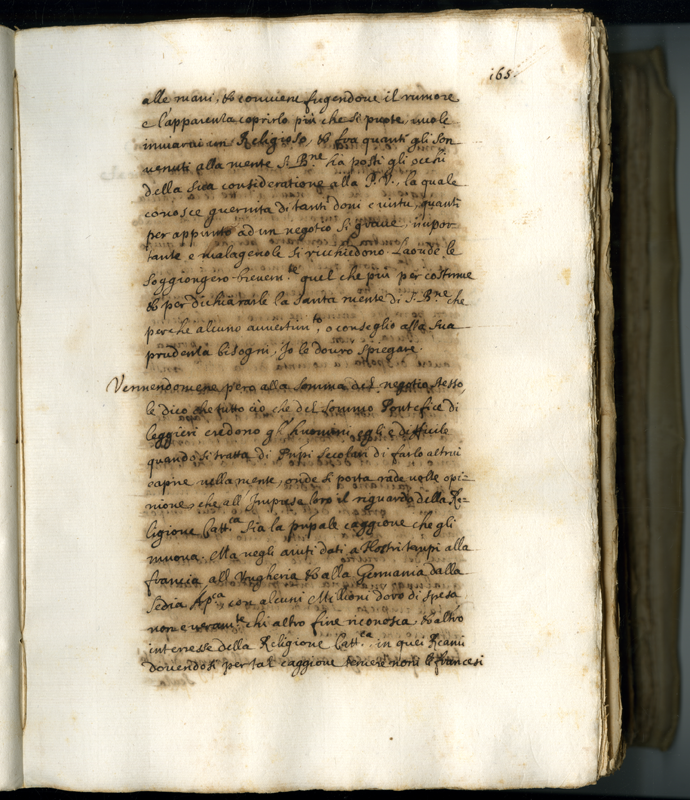 165.
alle mani, & conviene fugendone il rumore
e l'apparenza coprirlo più che si puote, vuole
inviarai un Religioso, & fra quanti gli son
venuti alla mente S. B.ne ha posti gli occhi
della sua consideratione alla P. V., la quale
conosce guernita di tanti doni e virtu, quanti
per appunto ad un negotio si grave, impor
tante e malagevole si richiedono. Laonde le
soggiongero brevem.te quel che più per
& per dichiararle la santa mente di S. B.ne che
perche alcuno avvertim.to, o conseglio alla sua
prudenza bisogni, Io le dovro spiegare.
Vennendomene però alla somma del negotio stesso,
le dico che tutto ciò che del sommo Pontefice di
leggieri credono gl' huomini, egli è difficile
quando si tratta di Pnpi secolari di farlo altrui
capire nella mente, onde si porta rade volte opi=
nione, che all' Imprese loro il riguardo della Re=
ligione Catt.ca sia la pnpale caggione che gli
muova. Ma negli aiuti dati a nostri tempi alla
francia, all' Ungheria & alla Germania dalla
Sedia Ap.ca con alcuni Millioni d'oro di spesa
non e veram.te chi altro fine riconosca, & altro
interesse della Religione Catt.ca in quei Reami
dovendosi per tal caggione temere non li francesi